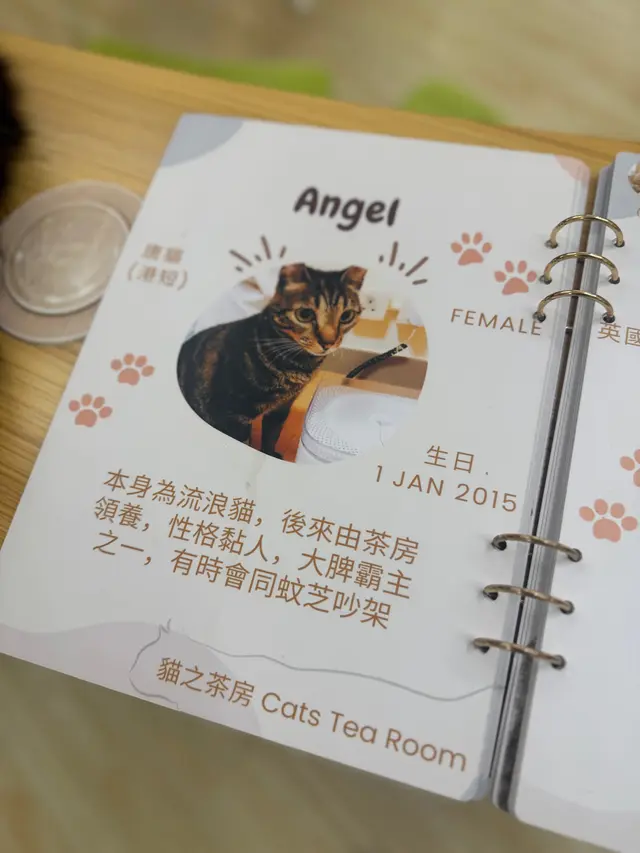 Angel
唐貓
(港短)
FEMALE
生日 .
1 JAN 2015
本身為流浪貓，後來由茶房
領養，性格黏人，大脾霸主
之一，有時會同蚊芝吵架
貓之茶房 Cats Tea Room
英國